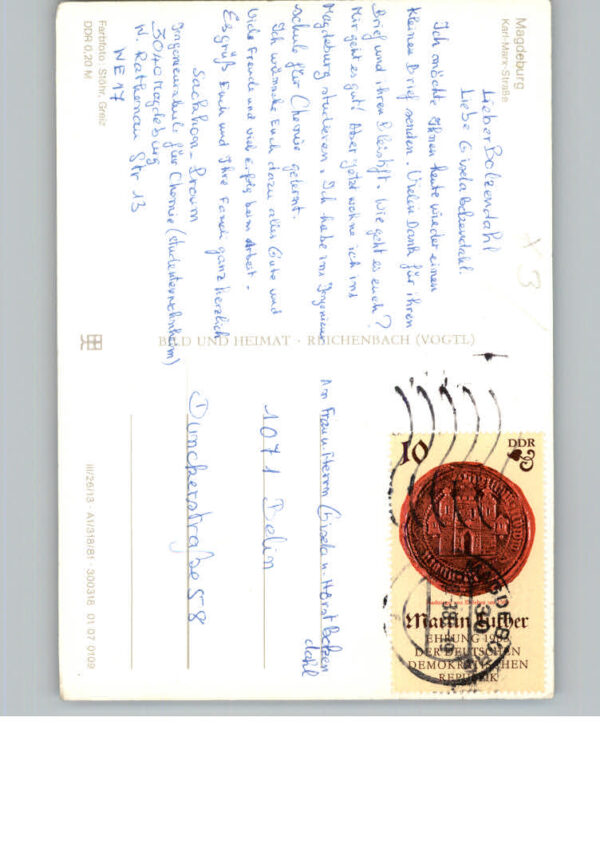 Magdeburg
Karl-Marx-Straße
Lieber Bolzendahl
Liebe Gisela Bolzendahl.
Ich möchte Ihnen heute wieder einen
kleinen Brief senden. Vielen Dank für ihren
Brief und ihren Bleistift. Wie geht es euch?
Mir geht es gut! Aber jetzt wohne ich ins
Magdeburg studieren. Ich habe ins Ingenieur
schule für Chemie gelernt.
Ich wünsche Euch dazu alles Gute und
viele Freude und viel Erfolg beim Arbeit -
Es grüß Euch und Ihre ganz herzlich
Ingenieurschule für Chemie (studentenwohnheim)
3040 Magdeburg
W. Rathenau Str 13
WE 17
Farbfoto: Stöhr, Greiz
DDR 0,20 M
BILD UND HEIMAT · REICHENBACH (VOGTL)
An Frau u. Herrn Gisela u. Horst Bolzen
dahl
1071 Belin
Dunckerstraße 58
III/26/13 · A1/318/81 · 300318 01 07 0109
10 DDR
Martin Luther
EHRUNG
DER DEUTSCHEN
DEMOKRATISCHEN
REPUBLIK
X 3